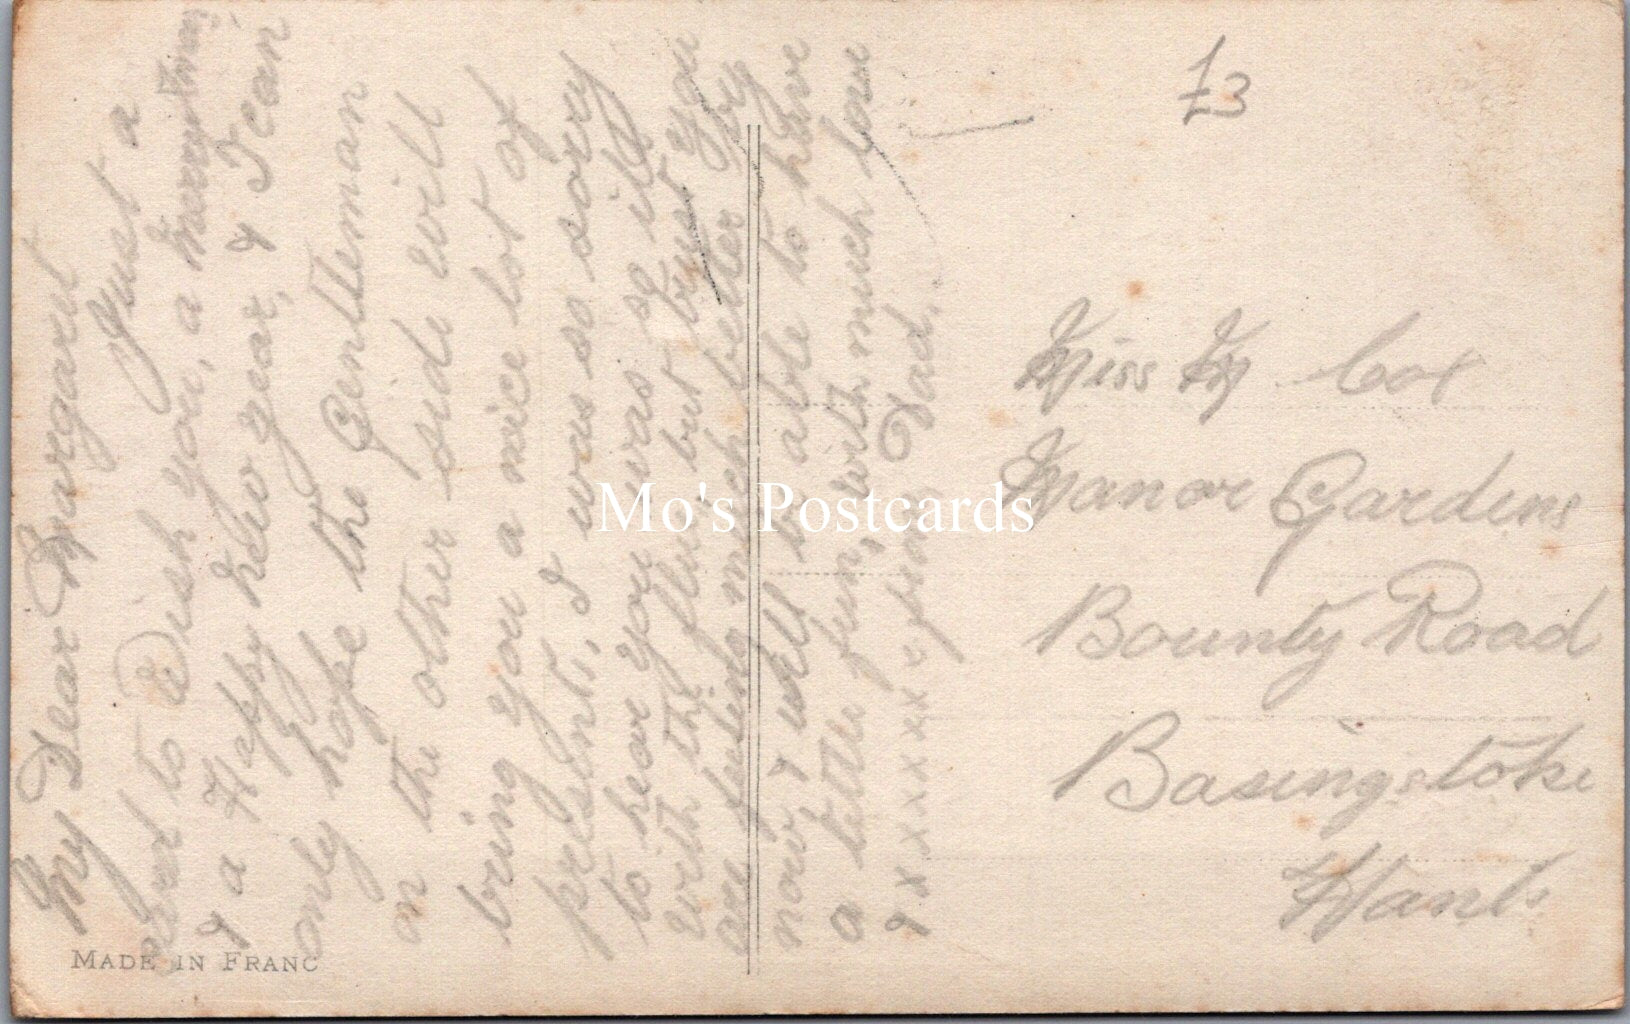 My Dear Margaret
Just a
card to Wish you, a merry Xmas
& a Happy new year, & I can
only hope the Gentleman
on the other side will
bring you a nice lot of
presents, I was so sorry
to hear you was so ill
with the flue but trust you
are feeling much better by
now & will be able to have
a little fun, with much love
x x x x x x x from Dad.
£3
Miss M Cox
Manor Gardens
Bounty Road
Basingstoke
Hants
MADE IN FRANC
Mo's Postcards